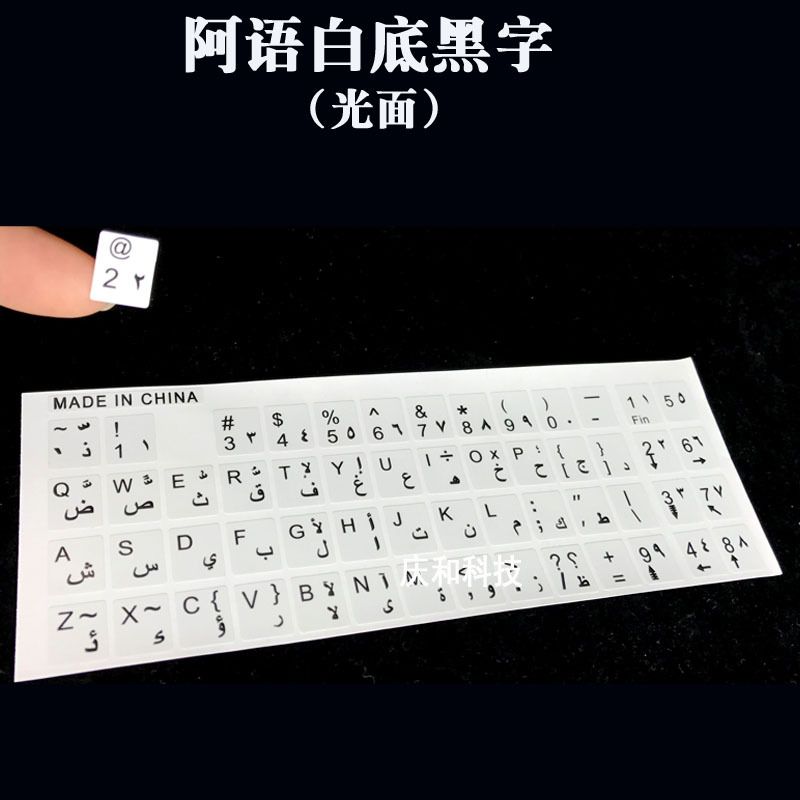 阿语白底黑字
（光面）
@
2 ٢
MADE IN CHINA
! 1 ١
# 3 ٣
$ 4 ٤
% 5 ٥
^ 6 ٦
& 7 ٧
* 8 ٨
( 9 ٩
) 0 ٠
— -
1 ١ Fin
5 ٥
Q ض
W ص
E ث
R ق
T ف
Y غ
U ع
I ÷ ه
O × خ
P ح
{ [ ج
} ] د
2 ٢ ↓
6 ٦ →
A ش
S س
D ي
F ب
G ل
H أ ا
J ت
K ن
L م
: ; ك
" ' ط
| \
3 ٣
7 ٧ ↖
Z ~ ئ
X ~ ء
C { ؤ
V } ر
B لا
N ى
ة
و
ز
? ؟ / ظ
+ =
9 ٩
4 ٤ ←
8 ٨ ↑
庆和科技